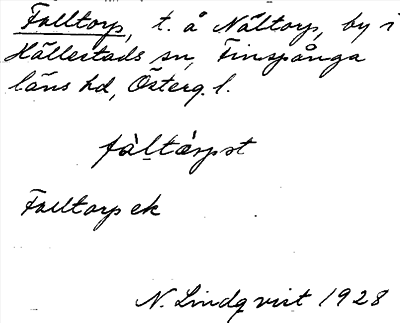 Falltorp, t. å Nältorp, by i
Hällestads sn, Finspånga
läns hd, Österg. l.
fàltárpst
Falltorp ek
N. Lindqvist 1928